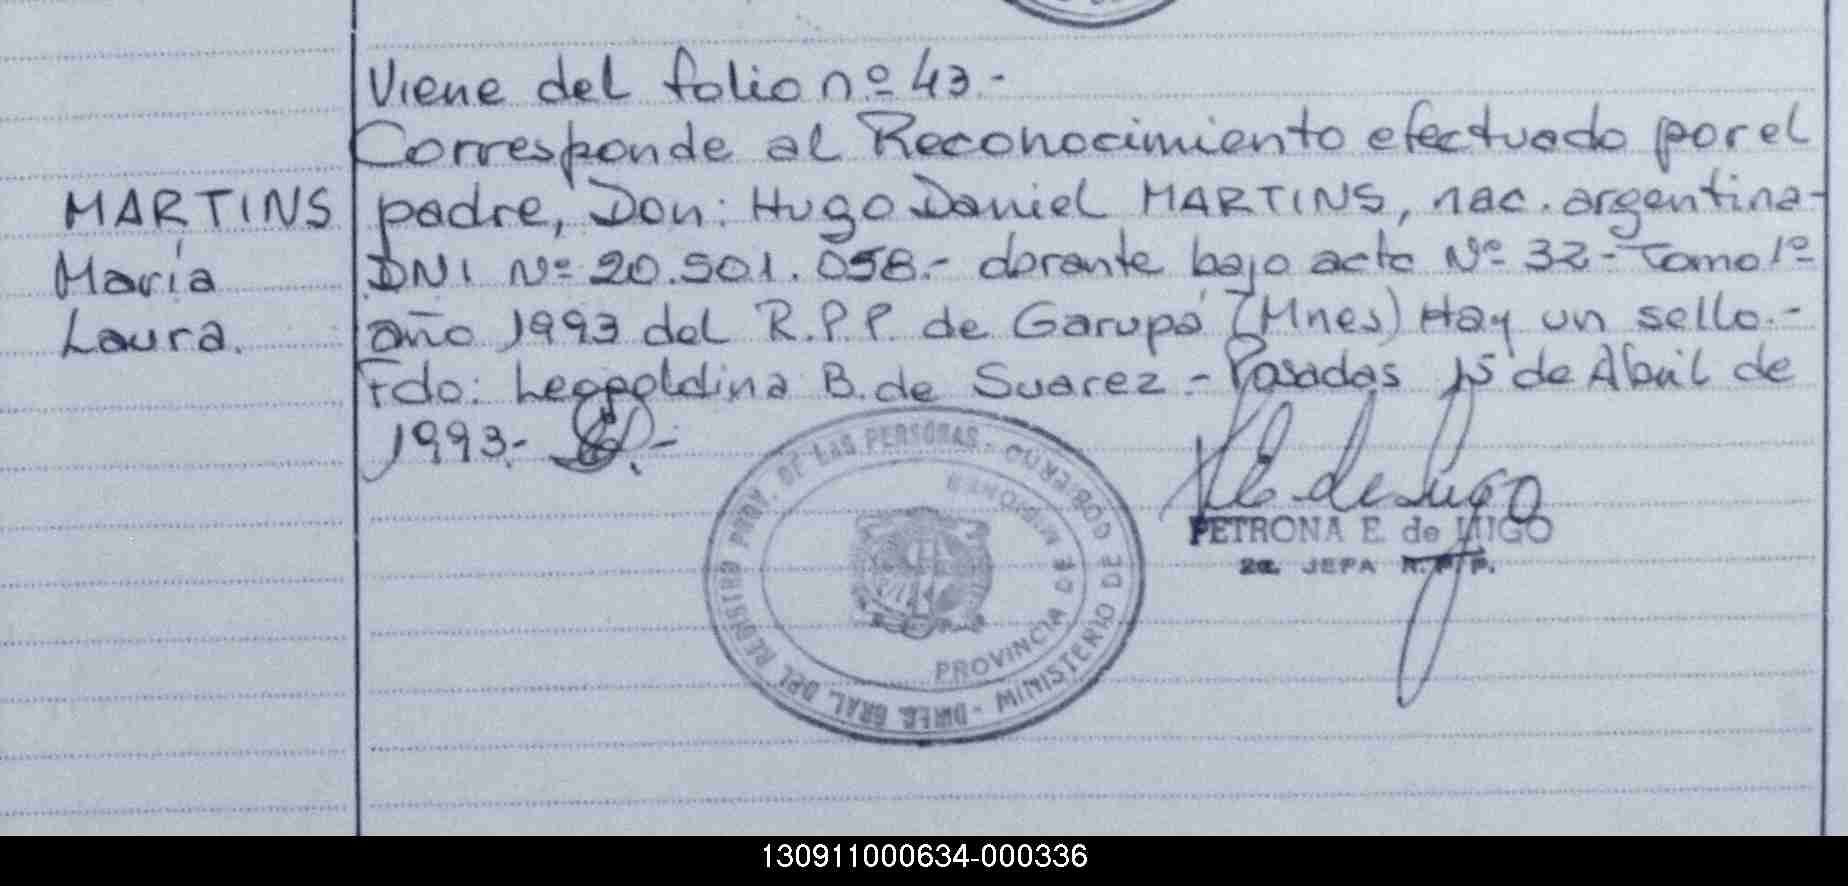 Viene del folio nº 43.-
Corresponde al Reconocimiento efectuado por el
MARTINS padre, Don: Hugo Daniel MARTINS, nac. argentina-
María DNI Nº 20.501.058.- obrante bajo acta Nº 32- Tomo 1º
Laura. año 1993 del R.P.P. de Garupá (Mnes) Hay un sello.-
Fdo: Leopoldina B. de Suarez - Posadas 15 de Abril de
1993.-
DIREC. GRAL. DEL REGISTRO PROV. DE LAS PERSONAS - MINISTERIO DE GOBIERNO
PROVINCIA DE MISIONES
PETRONA E. de LUGO
2a. JEFA R.P.P.
130911000634-000336